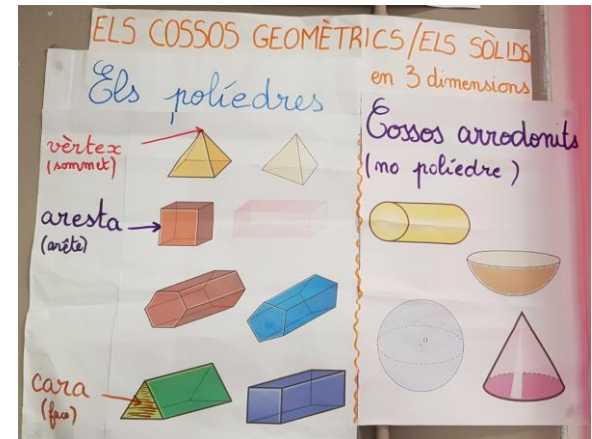 ELS COSSOS GEOMÈTRICS/ELS SÒLIDS
en 3 dimensions
Els políedres
vèrtex
(sommet)
aresta
(arête)
cara
(face)
Cossos arrodonits
(no políedre)